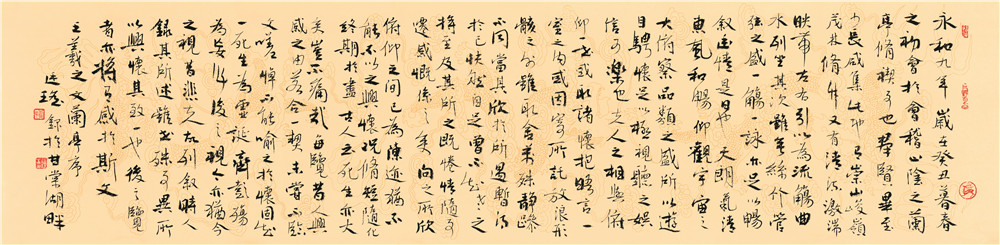 永和九年歲在癸丑暮春
之初會於會稽山陰之蘭
亭脩禊事也群賢畢至
少長咸集此地有崇山峻嶺
茂林脩竹又有清流激湍
映帶左右引以為流觴曲
水列坐其次雖無絲竹管
弦之盛一觴一詠亦足以暢
敘幽情是日也天朗氣清
惠風和暢仰觀宇宙之
大俯察品類之盛所以遊
目騁懷足以極視聽之娛
信可樂也夫人之相與俯
仰一世或取諸懷抱晤言一
室之內或因寄所託放浪形
骸之外雖取舍萬殊靜躁
不同當其欣於所遇暫得
於己快然自足曾不知老之
將至及其所之既惓情隨事
遷感慨係之矣向之所欣
俯仰之間已為陳迹猶不
能不以之興懷況脩短隨化
終期於盡古人云死生亦大
矣豈不痛哉每覽昔興
感之由若合一契未嘗不臨
文嗟悼不能喻之於懷固知
一死生為虛誕齊彭殤
為妄作後之視今亦猶今
之視昔悲夫故列敘時人
錄其所述雖世殊事異所
以興懷其致一也後之覽
者亦將有感於斯文
王羲之文蘭亭序
錄於甘棠湖畔